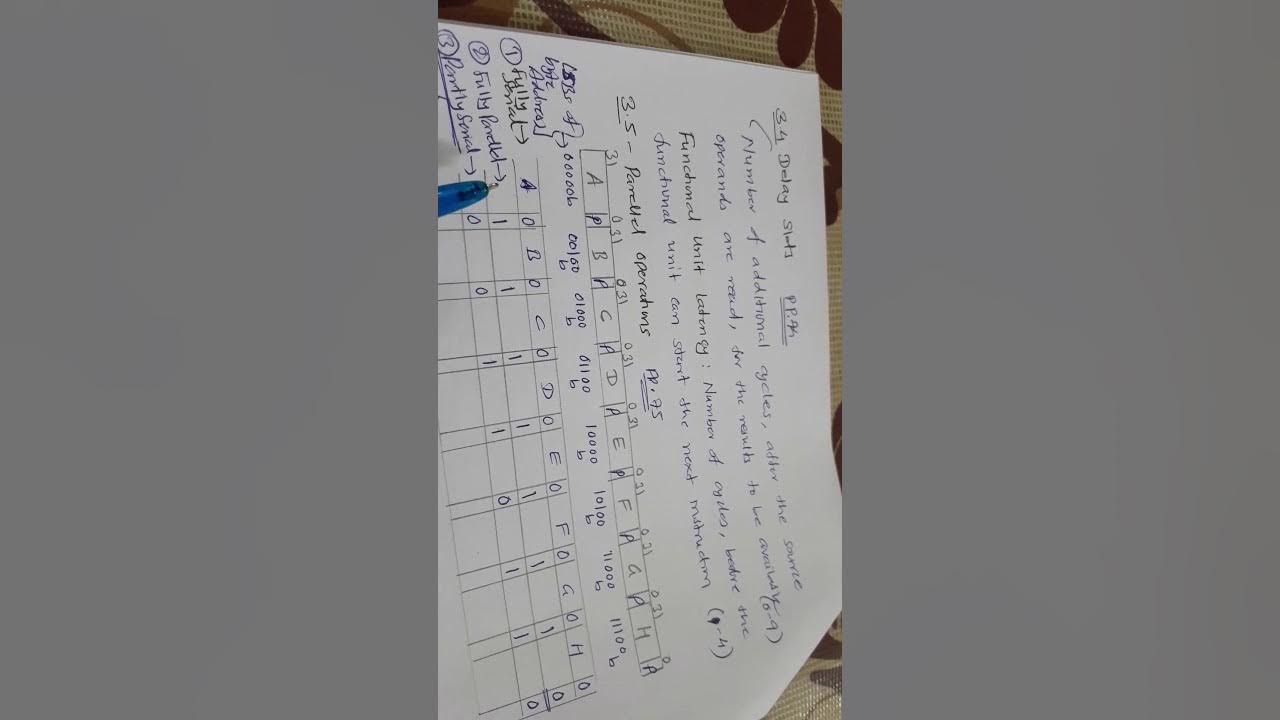 3.4 Delay Slots PP.74
(Number of additional cycles, after the source
operands are read, for the results to be available (0-9)
Functional Unit latency: Number of cycles, before the
functional unit can start the next instruction (1-4)
3.5 - Parallel operations PP.75
31 0 31 0 31 0 31 0 31 0 31 0 31 0 31 0
A P B P C P D P E P F P G P H P
LSBs of byte Address } → 00000b 00100b 01000b 01100b 10000b 10100b 11000b 11100b
① Fully Serial → A 0 B 0 C 0 D 0 E 0 F 0 G 0 H 0
② Fully Parallel → 1 1 1 1 1 1 1 0
③ Partly Serial → 0 0 1 1 0 1 1 0